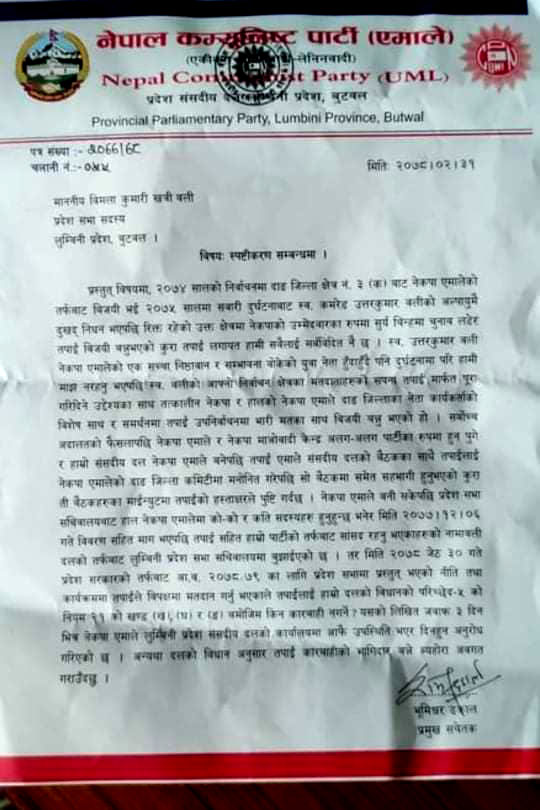 नेपाल कम्युनिष्ट पार्टी (एमाले)
(एकीकृत लेनिनवादी)
Nepal Communist Party (UML)
प्रदेश संसदीय दल लुम्बिनी प्रदेश, बुटवल
Provincial Parliamentary Party, Lumbini Province, Butwal
पत्र संख्या :-
चलानी नं.:-
मिति: २०७८।०२।३१
माननीय विमला कुमारी खत्री वली
प्रदेश सभा सदस्य
लुम्बिनी प्रदेश, बुटवल ।
विषयः स्पष्टीकरण सम्बन्धमा ।
प्रस्तुत विषयमा, २०७४ सालको निर्वाचनमा दाङ जिल्ला क्षेत्र नं. ३ (क) बाट नेकपा एमालेको
तर्फबाट विजयी भई २०७५ सालमा सवारी दुर्घटनाबाट स्व. कमरेड उत्तरकुमार वलीको अल्पायुमै
दुखद् निधन भएपछि रिक्त रहेको उक्त क्षेत्रमा नेकपाको उम्मेदवारका रुपमा सुर्य चिन्हमा चुनाव लडेर
तपाई विजयी बन्नुभएको कुरा तपाई लगायत हामी सबैलाई सर्वविदितै छ । स्व. उत्तरकुमार वली
नेकपा एमालेको एक सच्चा निष्ठावान र सम्भावना बोकेको युवा नेता हुँदाहुँदै पनि दुर्घटनामा परि हामी
माझ नरहनु भएपछि स्व. वलीको आफ्नो निर्वाचन क्षेत्रका मतदाताहरुको सपना तपाई मार्फत पूरा
गरिदिने उद्देश्यका साथ तत्कालीन नेकपा र हालको नेकपा एमाले दाङ जिल्लाका नेता कार्यकर्ताको
विशेष साथ र समर्थनमा तपाई उपनिर्वाचनमा भारी मतका साथ विजयी बन्नु भएको हो । सर्वोच्च
अदालतको फैसलापछि नेकपा एमाले र नेकपा माओवादी केन्द्र अलग-अलग पार्टीका रुपमा हुन पुगे
र हाम्रो संसदीय दल नेकपा एमाले बनेपछि तपाई एमाले संसदीय दलको बैठकका साथै तपाईलाई
नेकपा एमालेको दाङ जिल्ला कमिटीमा मनोनित गरेपछि सो बैठकमा समेत सहभागी हुनुभएको कुरा
ती बैठकहरुका माईन्युटमा तपाईको हस्ताक्षरले पुष्टि गर्दछ । नेकपा एमाले बनी सकेपछि प्रदेश सभा
सचिवालयबाट हाल नेकपा एमालेमा को-को र कति सदस्यहरु हुनुहुन्छ भनेर मिति २०७७।१२।०६
गते विवरण सहित माग भएपछि तपाई सहित हाम्रो पार्टीको तर्फबाट सांसद रहनु भएकाहरुको नामावली
दलको तर्फबाट लुम्बिनी प्रदेश सभा सचिवालयमा बुझाईएको छ । तर मिति २०७८ जेठ ३० गते
प्रदेश सरकारको तर्फबाट आ.व. २०७८.७९ का लागि प्रदेश सभामा प्रस्तुत भएको नीति तथा
कार्यक्रममा तपाईले विपक्षमा मतदान गर्नु भएकाले तपाईलाई हाम्रो दलको विधानको परिच्छेद-५ को
नियम को खण्ड (ख), (घ) र (ङ) बमोजिम किन कारवाही नगर्ने ? यसको लिखित जवाफ ३ दिन
भित्र नेकपा एमाले लुम्बिनी प्रदेश संसदीय दलको कार्यालयमा आफै उपस्थिति भएर दिनहुन अनुरोध
गरिएको छ । अन्यथा दलको विधान अनुसार तपाई कारवाहीको भागिदार बन्ने ब्यहोरा अवगत
गराउँदछु ।
भूमिश्वर ढकाल
प्रमुख सचेतक